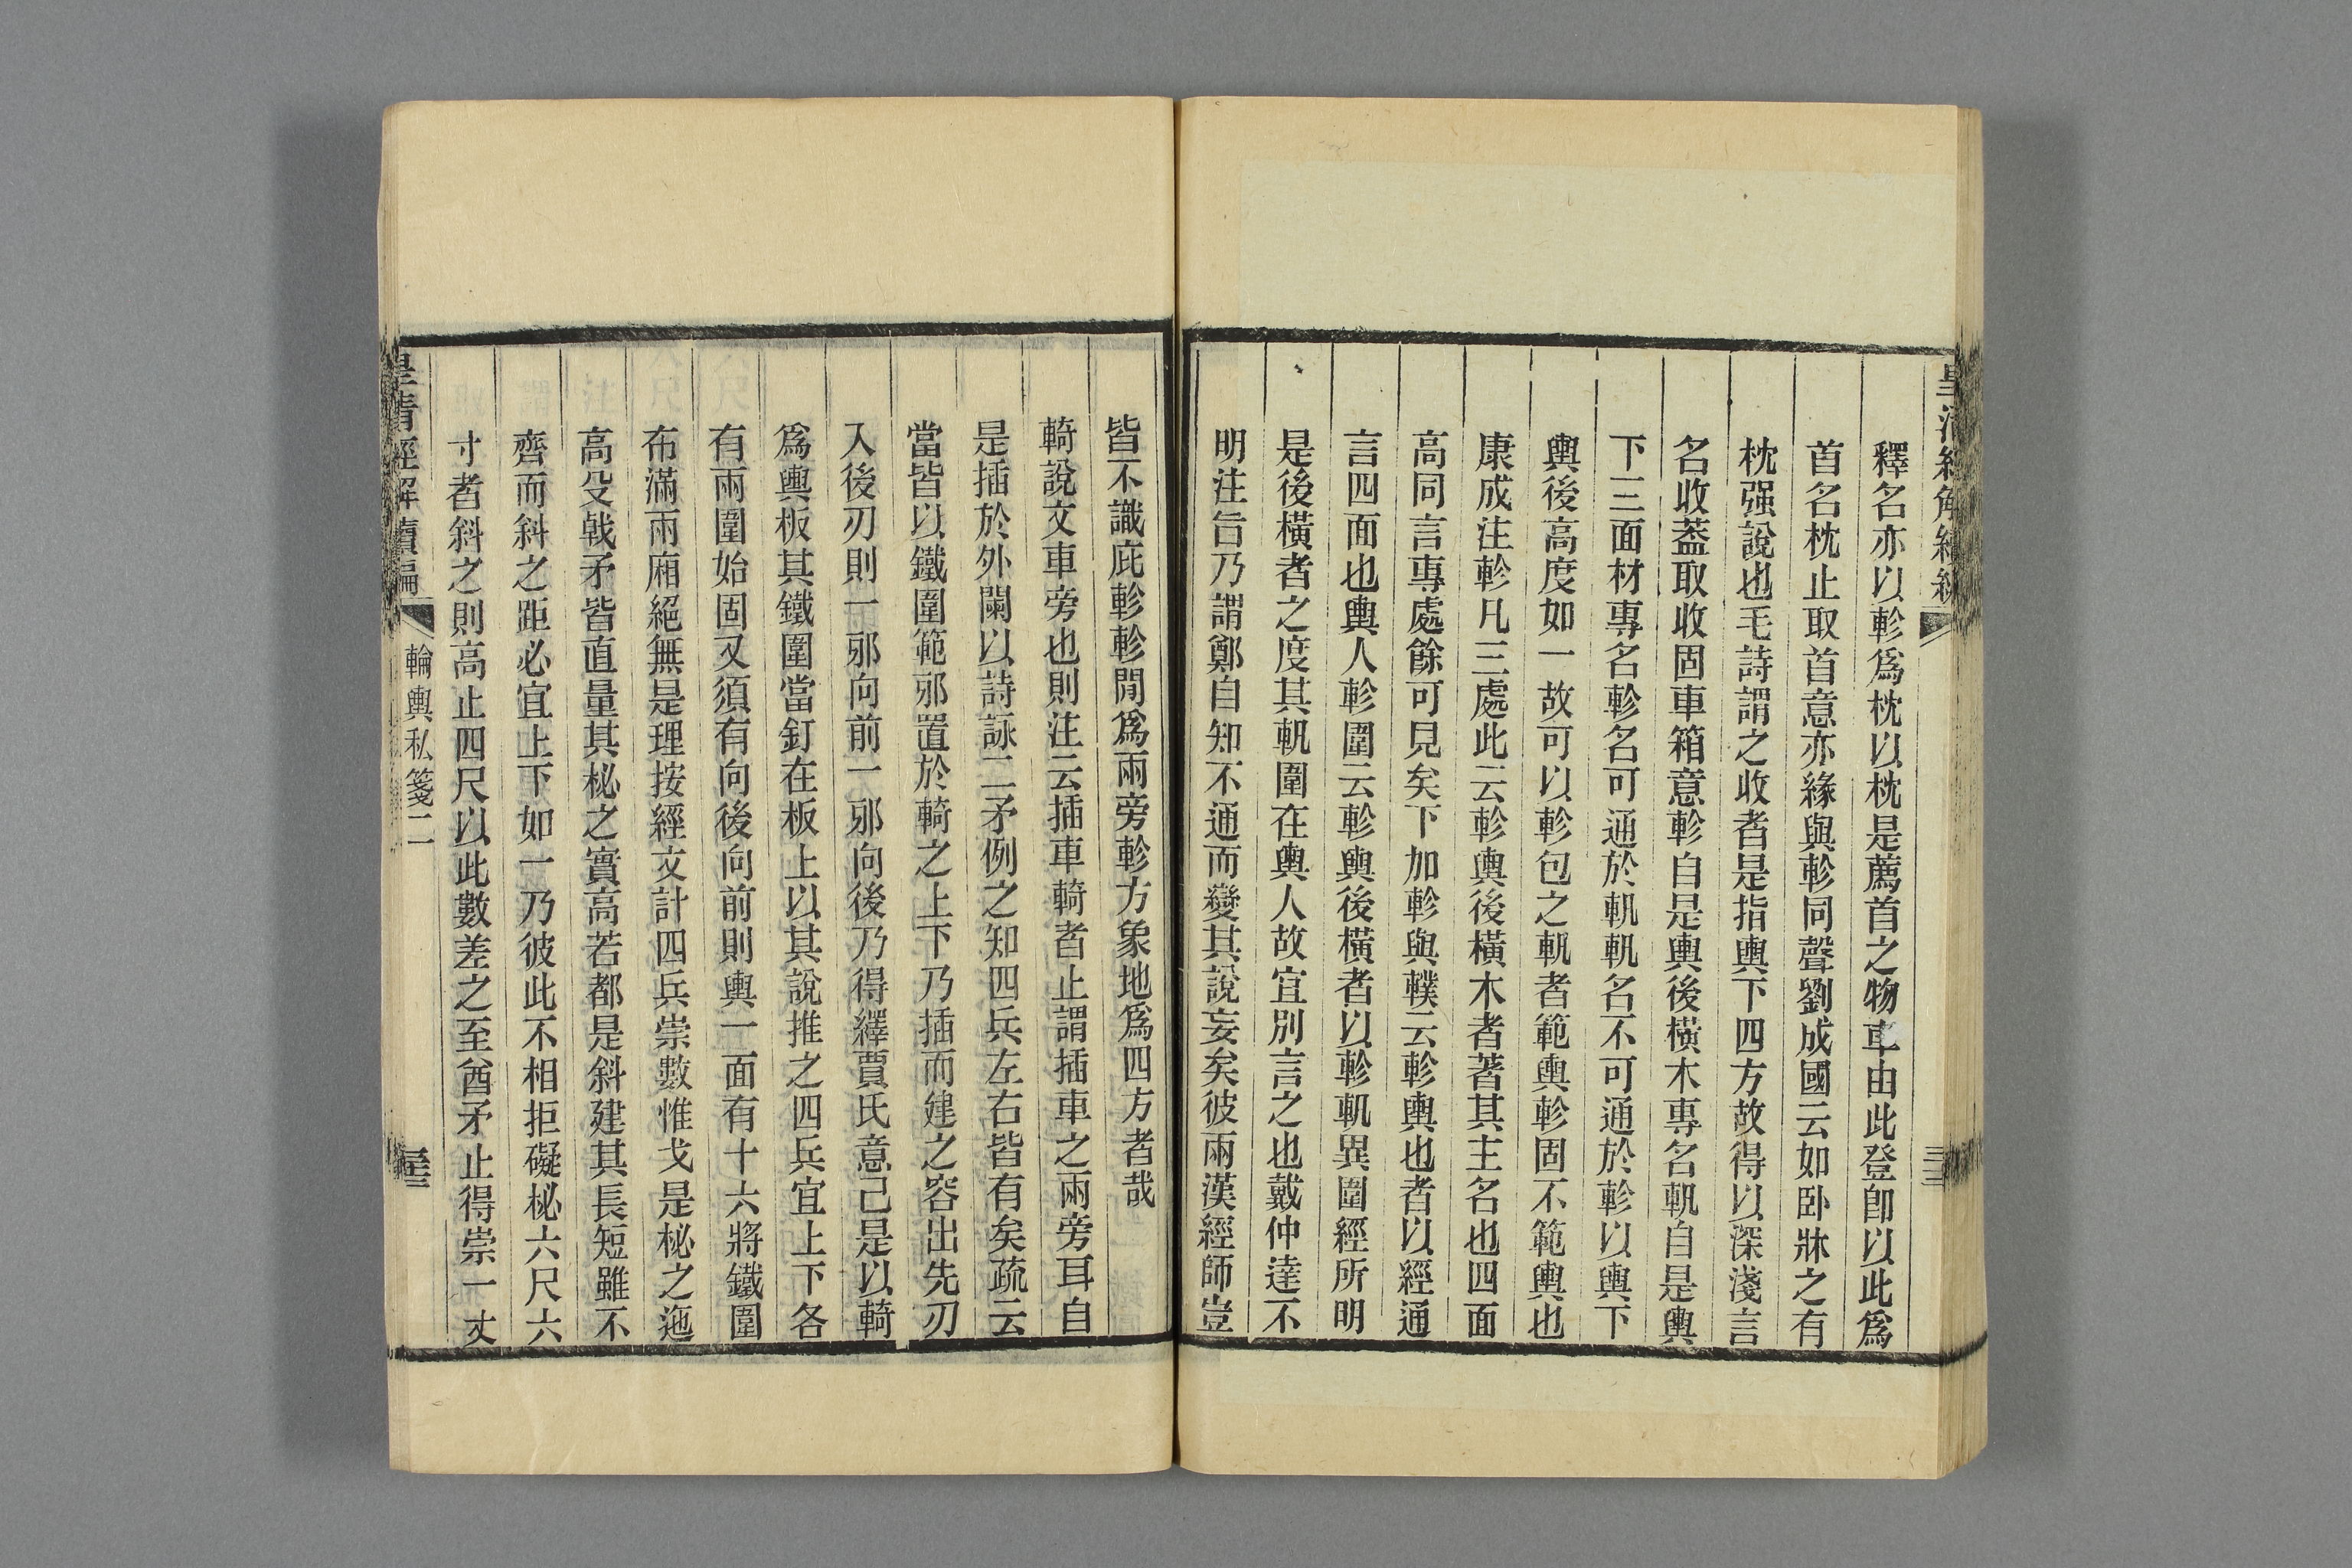 釋名亦以軫爲枕以枕是薦首之物車由此登卽以此爲
首名枕止取首意亦緣與軫同聲劉成國云如卧牀之有
枕强說也毛詩謂之收者是指輿下四方故得以深淺言
名收蓋取收固車箱意軫自是輿後橫木專名軓自是輿
下三面材專名軫名可通於軓軓名不可通於軫以輿下
輿後高度如一故可以軫包之軓者範輿軫固不範輿也
康成注軫凡三處此云軫輿後橫木者著其主名也四面
高同言專處餘可見矣下加軫與轐云軫輿也者以經通
言四面也輿人軫圍云軫輿後橫者以軫軓異圍經所明
是後橫者之度其軓圍在輿人故宜別言之也戴仲達不
明注旨乃謂鄭自知不通而變其說妄矣彼兩漢經師豈
皆不識庇軫軫閒爲兩旁軫方象地爲四方者哉
輢說文車旁也則注云插車輢者止謂插車之兩旁耳自
是插於外闌以詩詠二矛例之知四兵左右皆有矣疏云
當皆以鐵圍範邪置於輢之上下乃插而建之容出先刃
入後刃則一邪向前一邪向後乃得繹賈氏意己是以輢
爲輿板其鐵圍當釘在板上以其說推之四兵宜上下各
有兩圍始固又須有向後向前則輿一面有十六將鐵圍
布滿兩廂絕無是理按經文計四兵崇數惟戈是柲之迤
高殳戟矛皆直量其柲之實高若都是斜建其長短雖不
齊而斜之距必宜上下如一乃彼此不相拒礙柲六尺六
寸者斜之則高止四尺以此數差之至酋矛止得崇一丈
皇清經解續編
輪輿私箋二